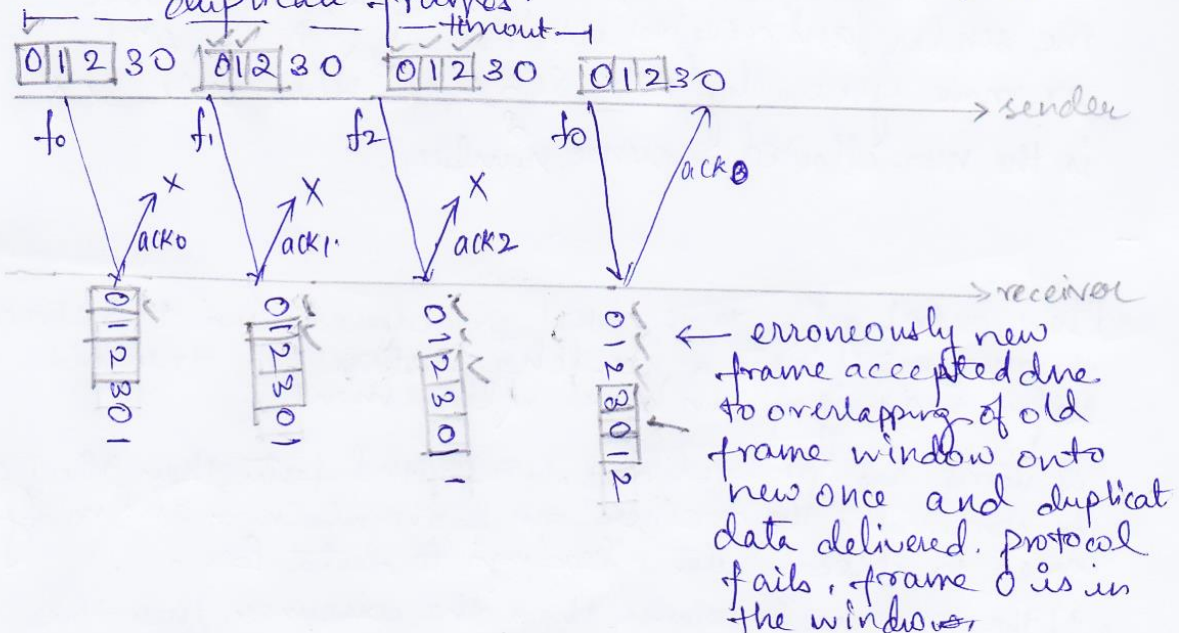 duplicate frames.
timeout
0 1 2 3 0 0 1 2 3 0 0 1 2 3 0 0 1 2 3 0
sender
f0 f1 f2 f0
x x x ack0
ack0 ack1. ack2
receiver
0 1 2 3 0 1
0 1 2 3 0 1
0 1 2 3 0 1 1
0 1 2 3 0 1 2
← erroneously new
frame accepted due
to overlapping of old
frame window onto
new once and duplicat
data delivered. protocol
fails, frame 0 is in
the window.